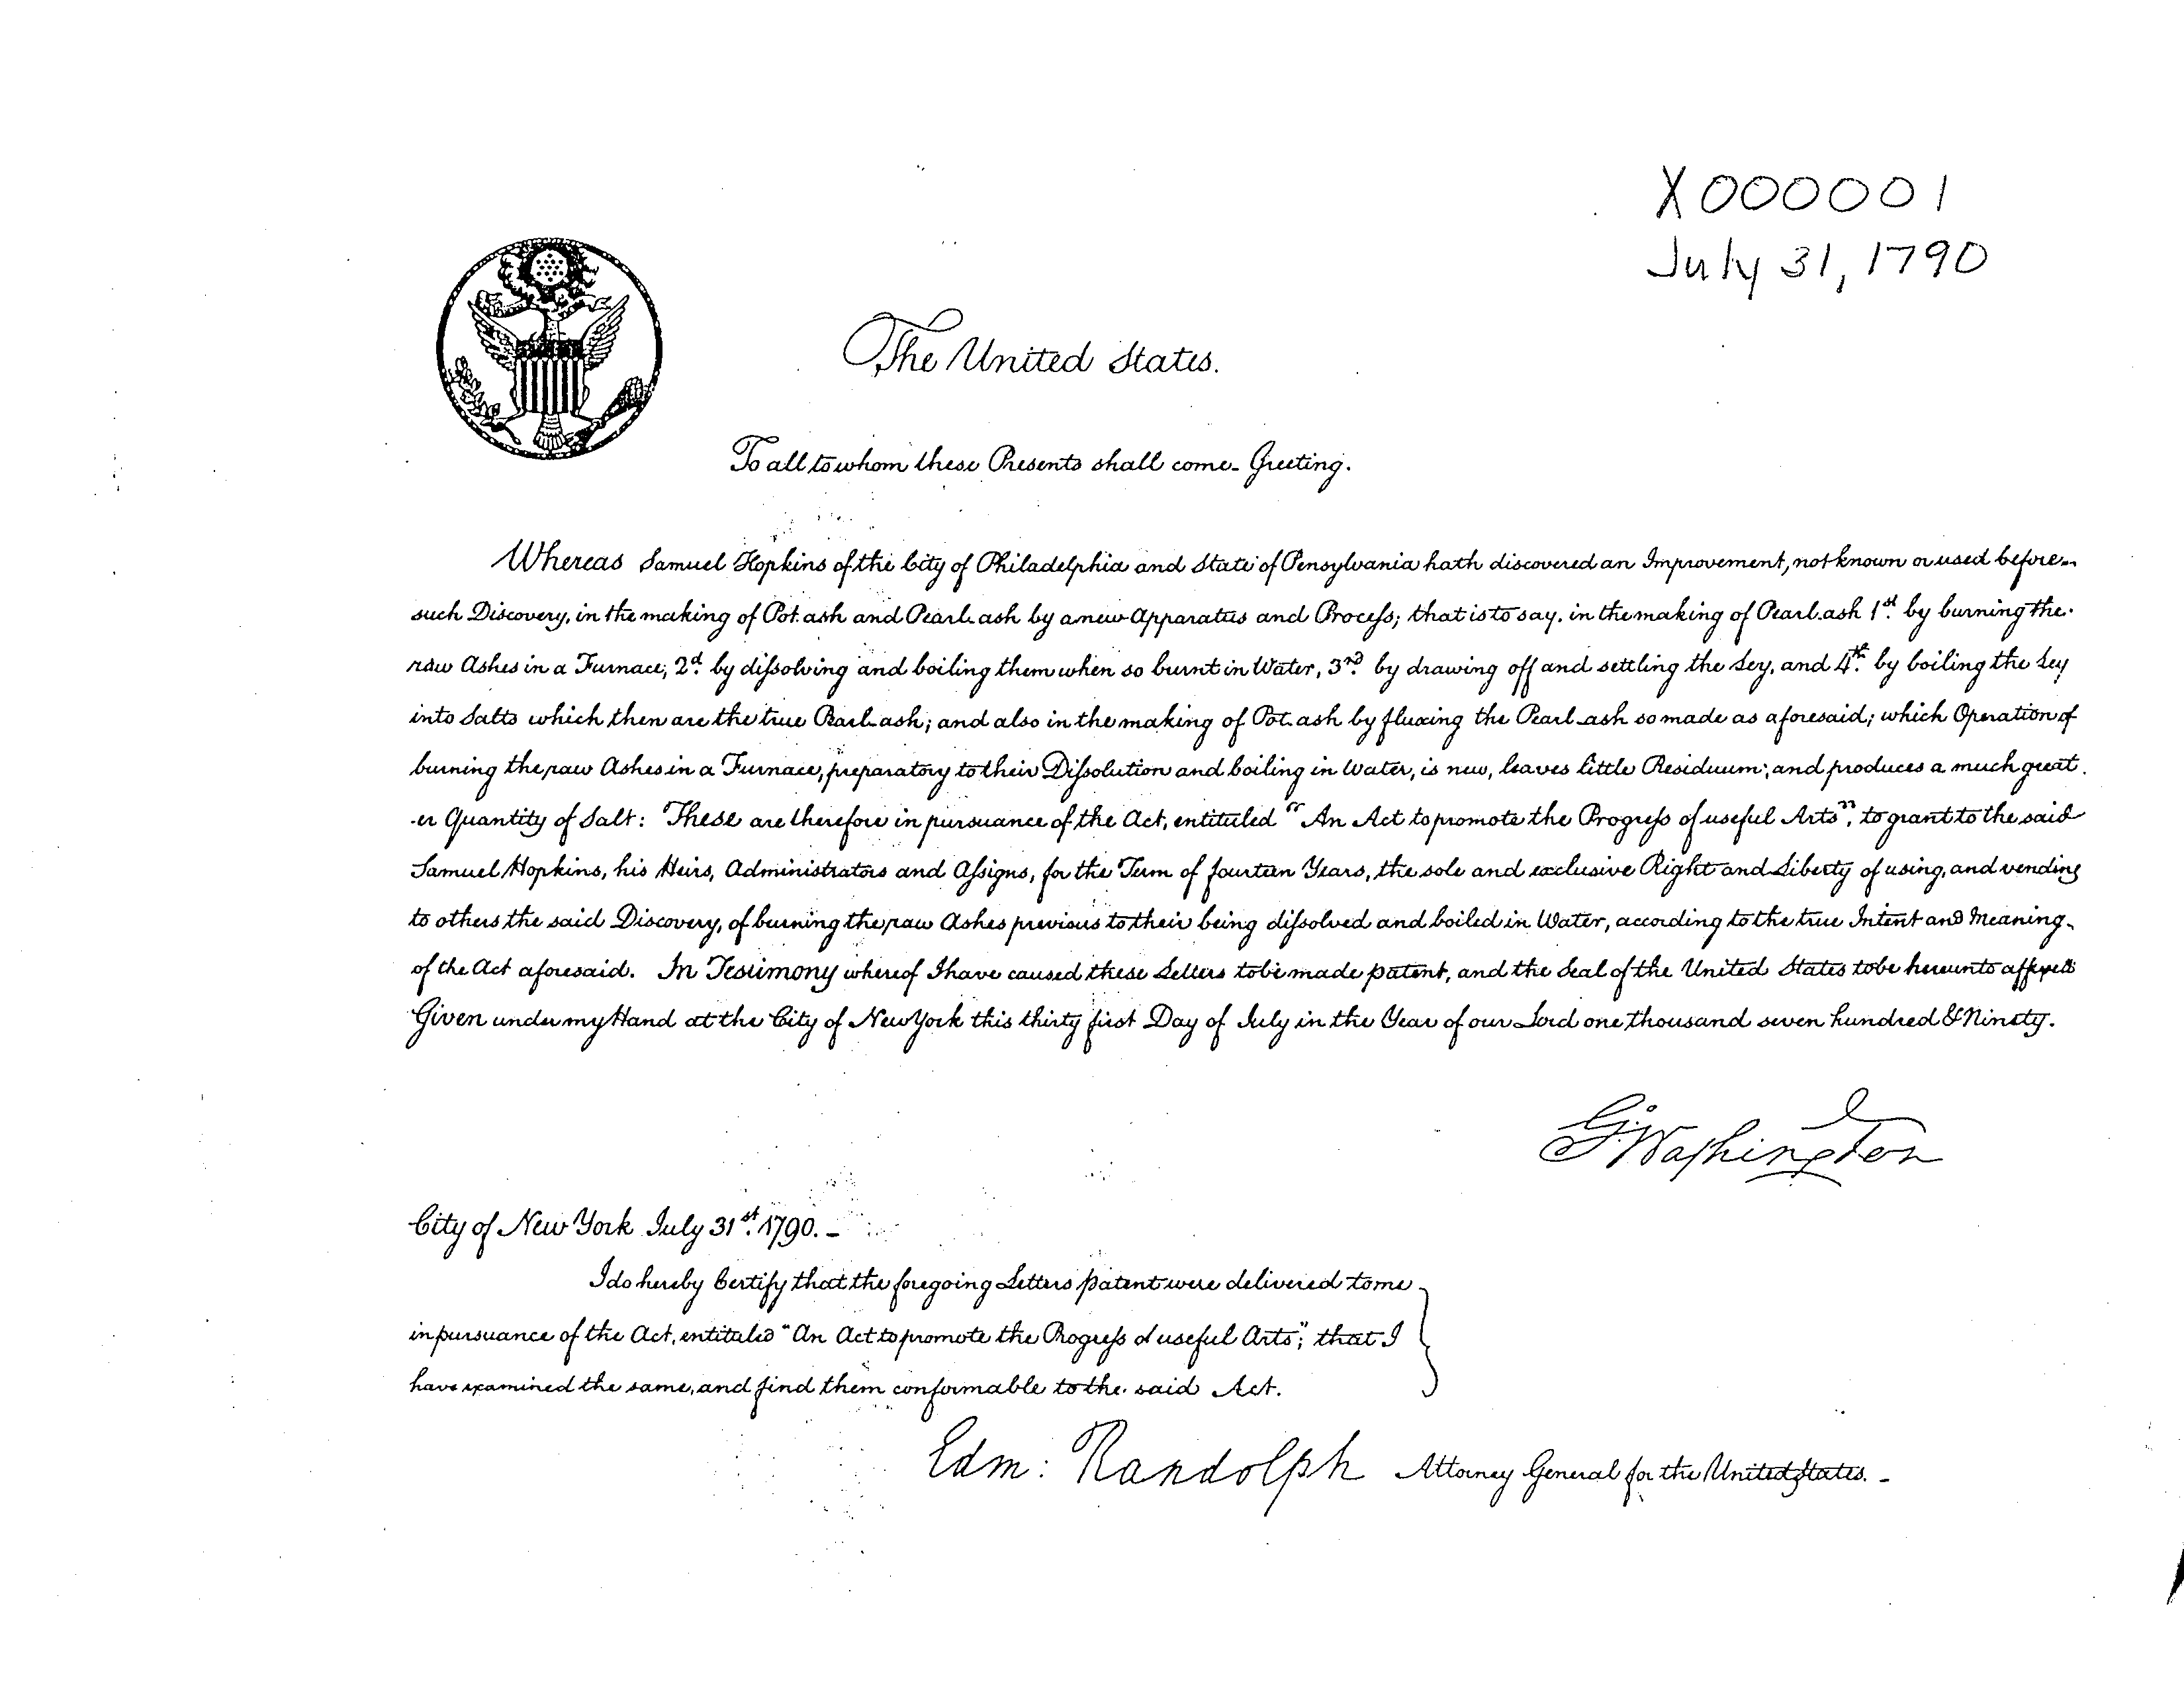 X000001
July 31, 1790
The United States.
To all to whom these Presents shall come - Greeting.
Whereas Samuel Hopkins of the City of Philadelphia and State of Pensylvania hath discovered an Improvement, not known or used before
such Discovery, in the making of Pot ash and Pearl ash by a new Apparatus and Process; that is to say, in the making of Pearl ash 1st. by burning the
raw Ashes in a Furnace, 2d. by dissolving and boiling them when so burnt in Water, 3rd. by drawing off and settling the Ley, and 4th. by boiling the Ley
into Salts which then are the true Pearl ash; and also in the making of Pot ash by fluxing the Pearl ash so made as aforesaid; which Operation of
burning the raw Ashes in a Furnace, preparatory to their Dissolution and boiling in Water, is new, leaves little Residuum; and produces a much great
-er Quantity of Salt: These are therefore in pursuance of the Act, entituled "An Act to promote the Progress of useful Arts", to grant to the said
Samuel Hopkins, his Heirs, Administrators and Assigns, for the Term of fourteen Years, the sole and exclusive Right and Liberty of using, and vending
to others the said Discovery, of burning the raw Ashes previous to their being dissolved and boiled in Water, according to the true Intent and Meaning
of the Act aforesaid. In Testimony whereof I have caused these Letters to be made patent, and the Seal of the United States to be hereunto affixed
Given under my Hand at the City of New York this thirty first Day of July in the Year of our Lord one thousand seven hundred & Ninety.
G. Washington
City of New York July 31st. 1790. -
I do hereby Certify that the foregoing Letters patent were delivered to me
in pursuance of the Act, entituled "An Act to promote the Progress of useful Arts"; that I
have examined the same, and find them conformable to the said Act.
Edm: Randolph Attorney General for the United States. -